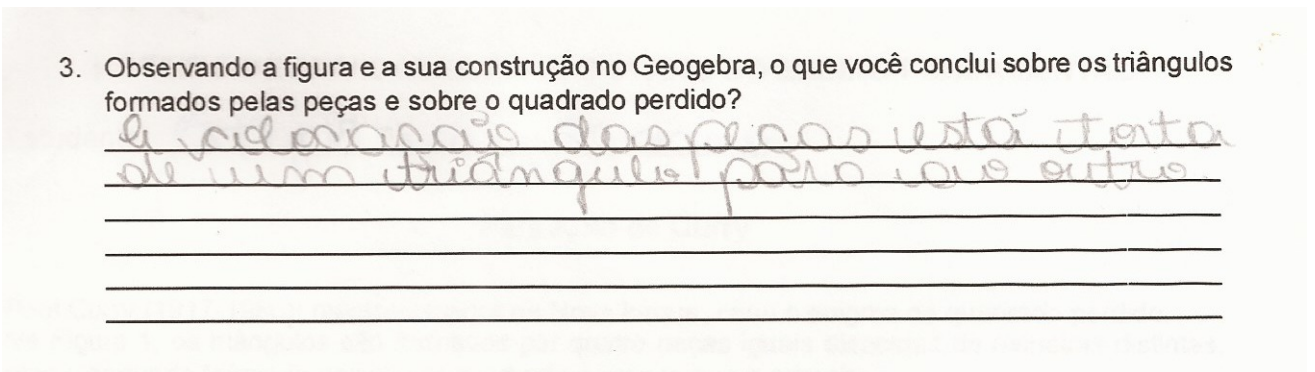 3. Observando a figura e a sua construção no Geogebra, o que você conclui sobre os triângulos
formados pelas peças e sobre o quadrado perdido?
A colocação das peças está torta
de um triângulo para outro.